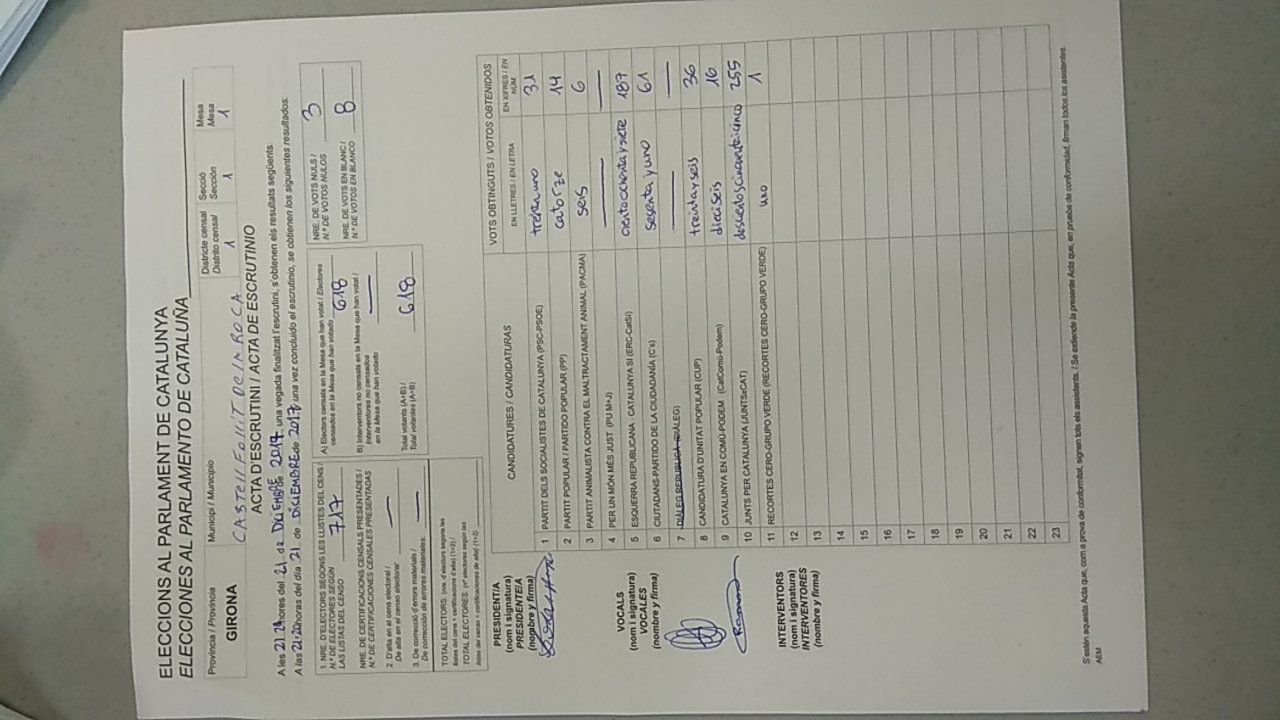 ELECCIONS AL PARLAMENT DE CATALUNYA
ELECCIONES AL PARLAMENTO DE CATALUÑA
Província / Provincia Municipi / Municipio Districte censal Secció Mesa
Distrito censal Sección Mesa
GIRONA CASTELLFOLLIT DE LA ROCA 1 1 1
ACTA D'ESCRUTINI / ACTA DE ESCRUTINIO
A les hores del 21 de DICIEMBRE de 2017, una vegada finalitzat l'escrutini, s'obtenen els resultats següents.
A las 21:20 horas del día 21 de DICIEMBRE de 2017, una vez concluido el escrutinio, se obtienen los siguientes resultados:
1. NRE. D'ELECTORS SEGONS LES LLISTES DEL CENS /
N.º DE ELECTORES SEGÚN
LAS LISTAS DEL CENSO 717
NRE. DE CERTIFICACIONS CENSALS PRESENTADES /
N.º DE CERTIFICACIONES CENSALES PRESENTADAS
2. D'alta en el cens electoral /
De alta en el censo electoral: —
3. De correcció d'errors materials /
De corrección de errores materiales: —
TOTAL ELECTORS: (nre. d'electors segons les
llistes del cens + certificacions d'alta) (1+2) /
TOTAL ELECTORES: (nº electores según las
listas del censo + certificaciones de alta) (1+2)
A) Electors censats en la Mesa que han votat / Electores
censados en la Mesa que han votado 618
B) Interventors no censats en la Mesa que han votat /
Interventores no censados
en la Mesa que han votado —
Total votants (A+B) /
Total votantes (A+B) 618
NRE. DE VOTS NULS /
N.º DE VOTOS NULOS 3
NRE. DE VOTS EN BLANC /
N.º DE VOTOS EN BLANCO 8
PRESIDENT/A
(nom i signatura)
PRESIDENTE/A
(nombre y firma)
VOCALS
(nom i signatura)
VOCALES
(nombre y firma)
INTERVENTORS
(nom i signatura)
INTERVENTORES
(nombre y firma)
CANDIDATURES / CANDIDATURAS VOTS OBTINGUTS / VOTOS OBTENIDOS
EN LLETRES / EN LETRA EN XIFRES / EN NÚM.
1 PARTIT DELS SOCIALISTES DE CATALUNYA (PSC-PSOE) treinta uno 31
2 PARTIT POPULAR / PARTIDO POPULAR (PP) catorze 14
3 PARTIT ANIMALISTA CONTRA EL MALTRACTAMENT ANIMAL (PACMA) seis 6
4 PER UN MÓN MÉS JUST (PU M+J) — —
5 ESQUERRA REPUBLICANA - CATALUNYA SÍ (ERC-CatSí) ciento ochenta y siete 187
6 CIUTADANS-PARTIDO DE LA CIUDADANÍA (C's) sesenta y uno 61
7 DIÀLEG REPUBLICÀ (DIÀLEG) — —
8 CANDIDATURA D'UNITAT POPULAR (CUP) treinta y seis 36
9 CATALUNYA EN COMÚ-PODEM (CatComú-Podem) dieciseis 16
10 JUNTS PER CATALUNYA (JUNTSxCAT) doscientos cincuenta cinco 255
11 RECORTES CERO-GRUPO VERDE (RECORTES CERO-GRUPO VERDE) uno 1
12
13
14
15
16
17
18
19
20
21
22
23
S'estén aquesta Acta que, com a prova de conformitat, signen tots els assistents. / Se extiende la presente Acta que, en prueba de conformidad, firman todos los asistentes.
AEM